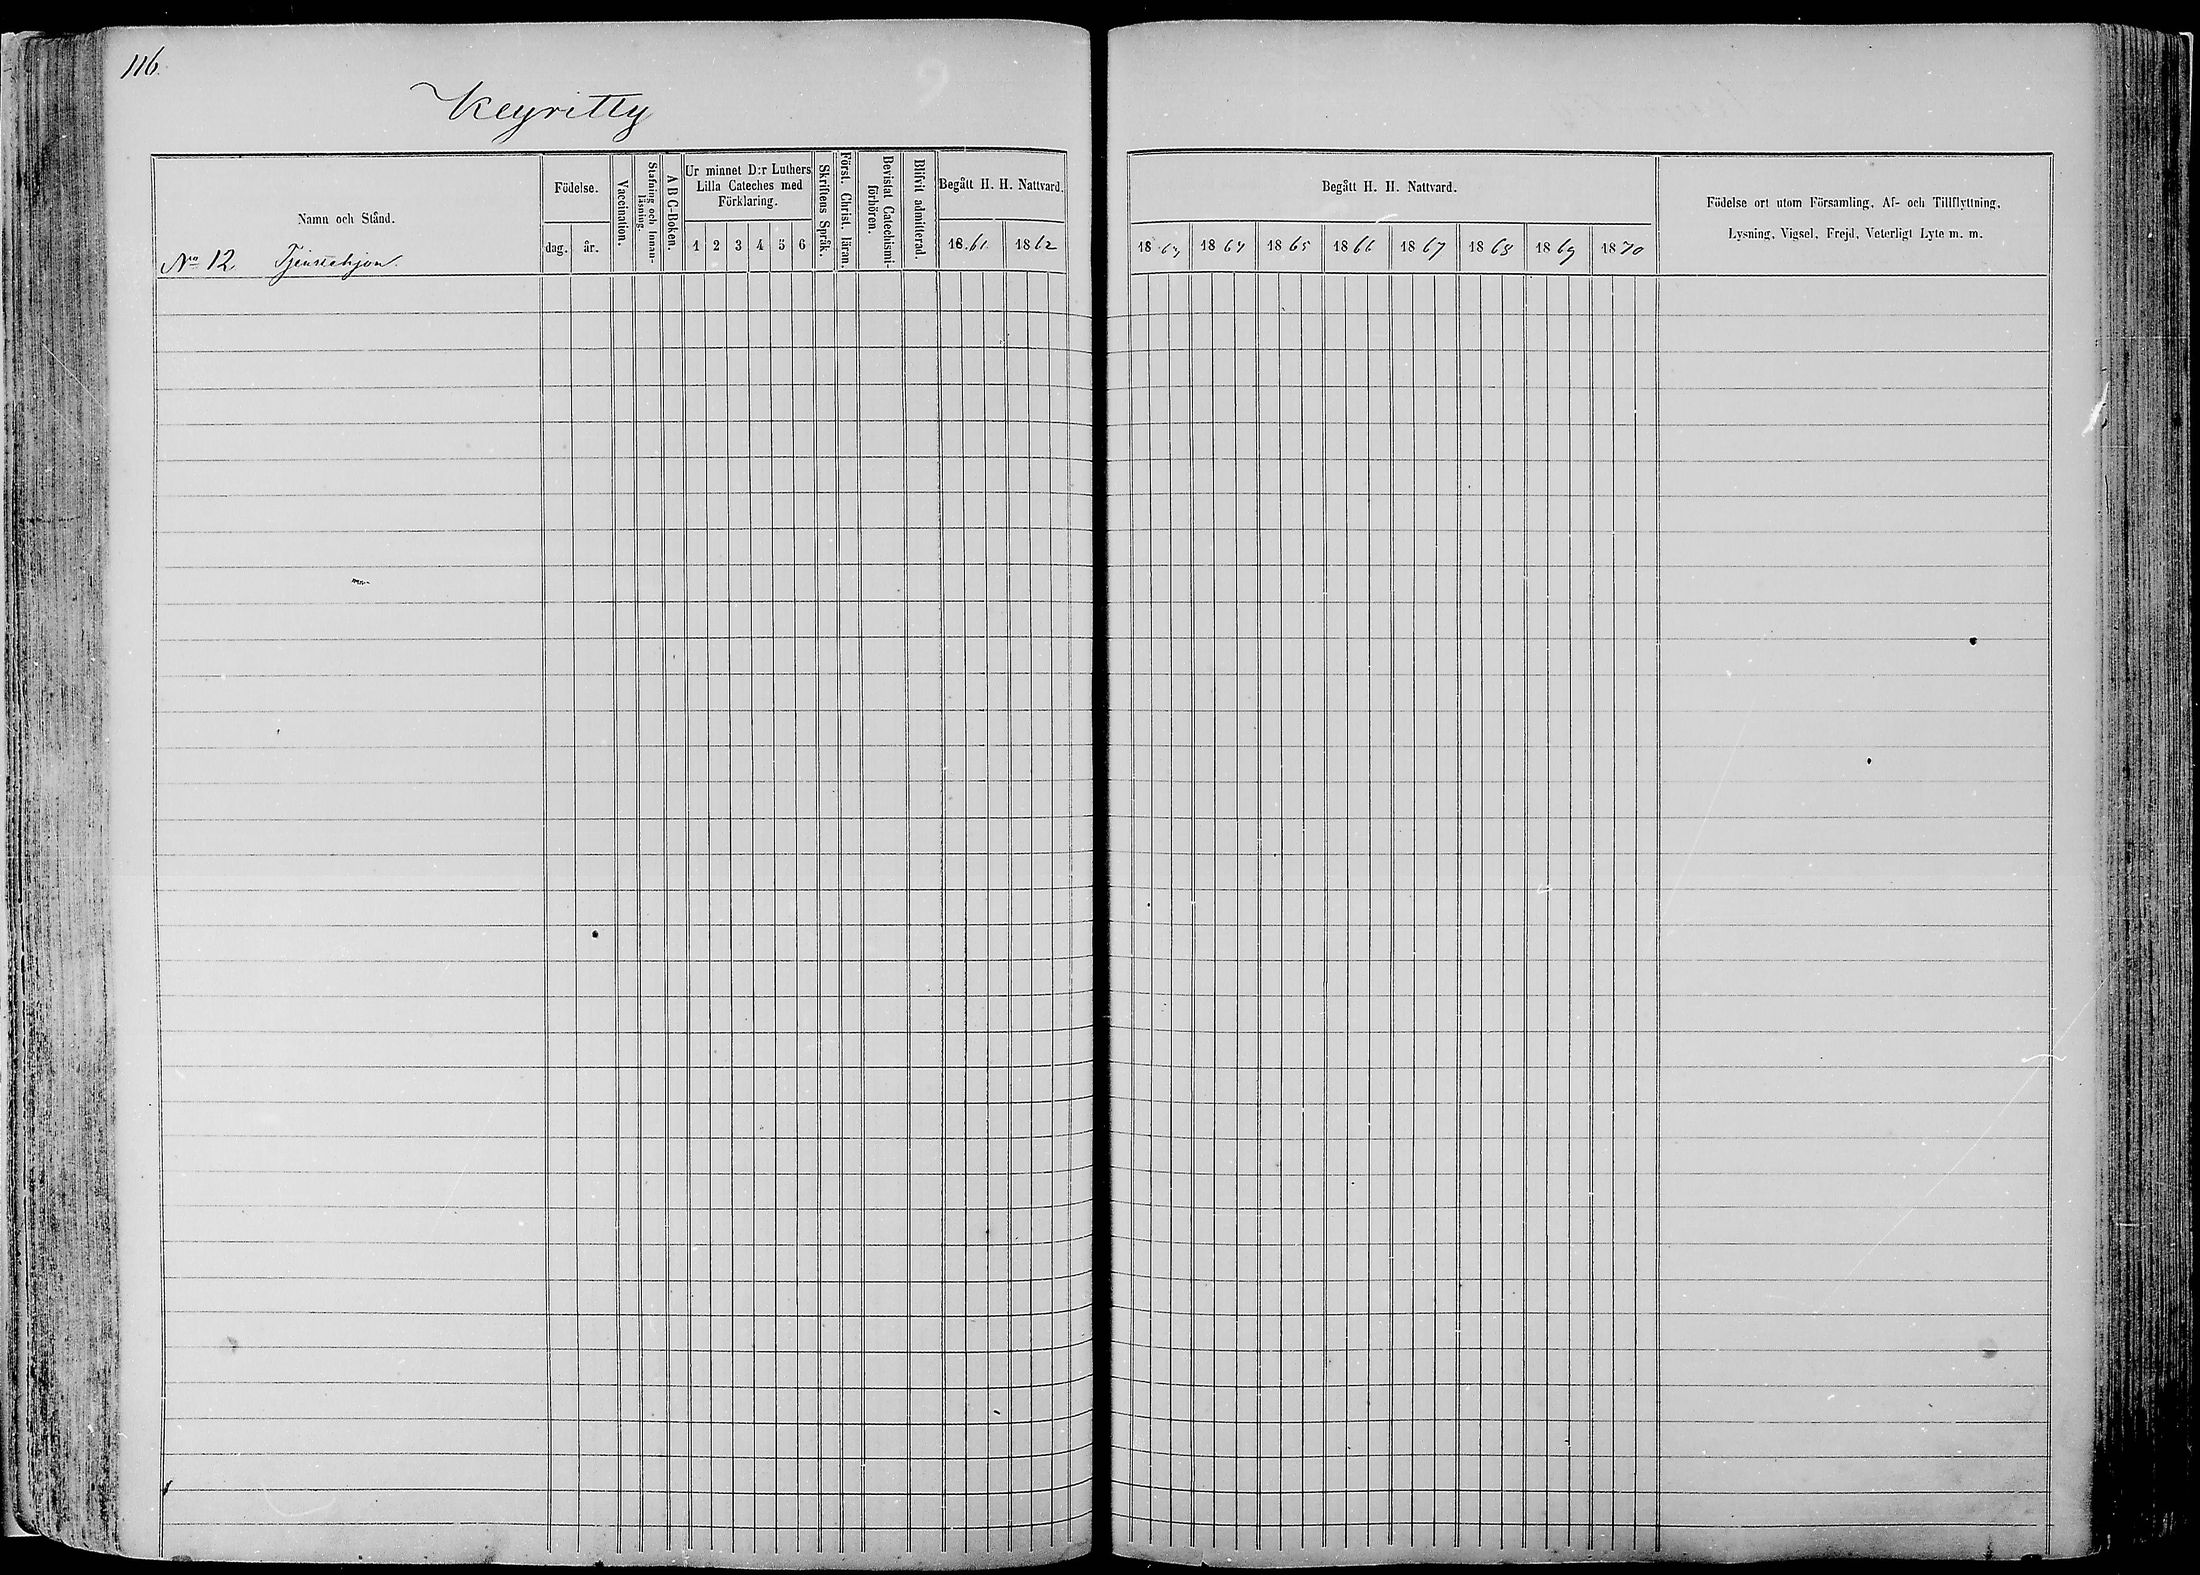 116.
Keyritty
Namn och Stånd.
No 12 Tjenstehjon.
Födelse.
dag. år.
Vaccination.
Stafning och Innan-
läsning.
A B C-Boken.
Ur minnet D:r Luthers
Lilla Cateches med
Förklaring.
1 2 3 4 5 6
Skriftens Språk.
Först. Christ. läran.
Bevistat Catechismi-
förhören.
Blifvit admitterad.
Begått H. H. Nattvard.
1861 1862
Begått H. H. Nattvard.
1863 1864 1865 1866 1867 1868 1869 1870
Födelse ort utom Församling, Af- och Tillflyttning,
Lysning, Vigsel, Frejd, Veterligt Lyte m. m.